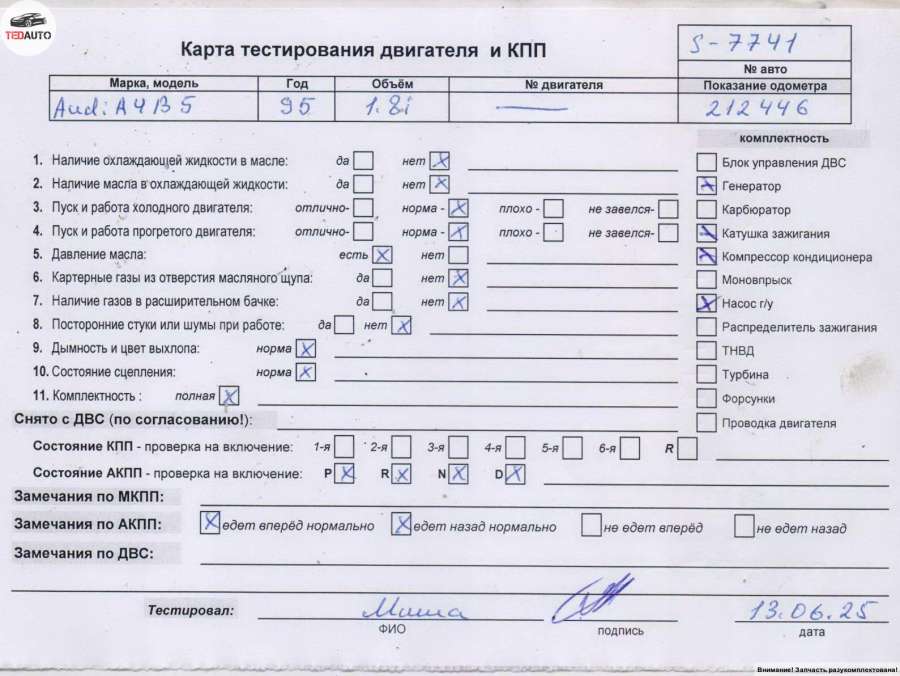 TEDAUTO
Карта тестирования двигателя и КПП
S-7741
№ авто
Марка, модель Год Объём № двигателя Показание одометра
Audi A4 B5 95 1.8i — 212446
комплектность
1. Наличие охлаждающей жидкости в масле: да нет X
Блок управления ДВС
2. Наличие масла в охлаждающей жидкости: да нет X
X Генератор
3. Пуск и работа холодного двигателя: отлично- норма - X плохо - не завелся-
Карбюратор
4. Пуск и работа прогретого двигателя: отлично- норма - X плохо - не завелся-
X Катушка зажигания
5. Давление масла: есть X нет
X Компрессор кондиционера
6. Картерные газы из отверстия масляного щупа: да нет X
Моновпрыск
7. Наличие газов в расширительном бачке: да нет X
X Насос г/у
8. Посторонние стуки или шумы при работе: да нет X
Распределитель зажигания
9. Дымность и цвет выхлопа: норма X
ТНВД
10. Состояние сцепления: норма X
Турбина
11. Комплектность : полная X
Форсунки
Снято с ДВС (по согласованию!):
Проводка двигателя
Состояние КПП - проверка на включение: 1-я 2-я 3-я 4-я 5-я 6-я R
Состояние АКПП - проверка на включение: P X R X N X D X
Замечания по МКПП:
Замечания по АКПП: X едет вперёд нормально X едет назад нормально не едет вперёд не едет назад
Замечания по ДВС:
Тестировал: Миша 13.06.25
ФИО подпись дата
Внимание! Запчасть разукомплектована!